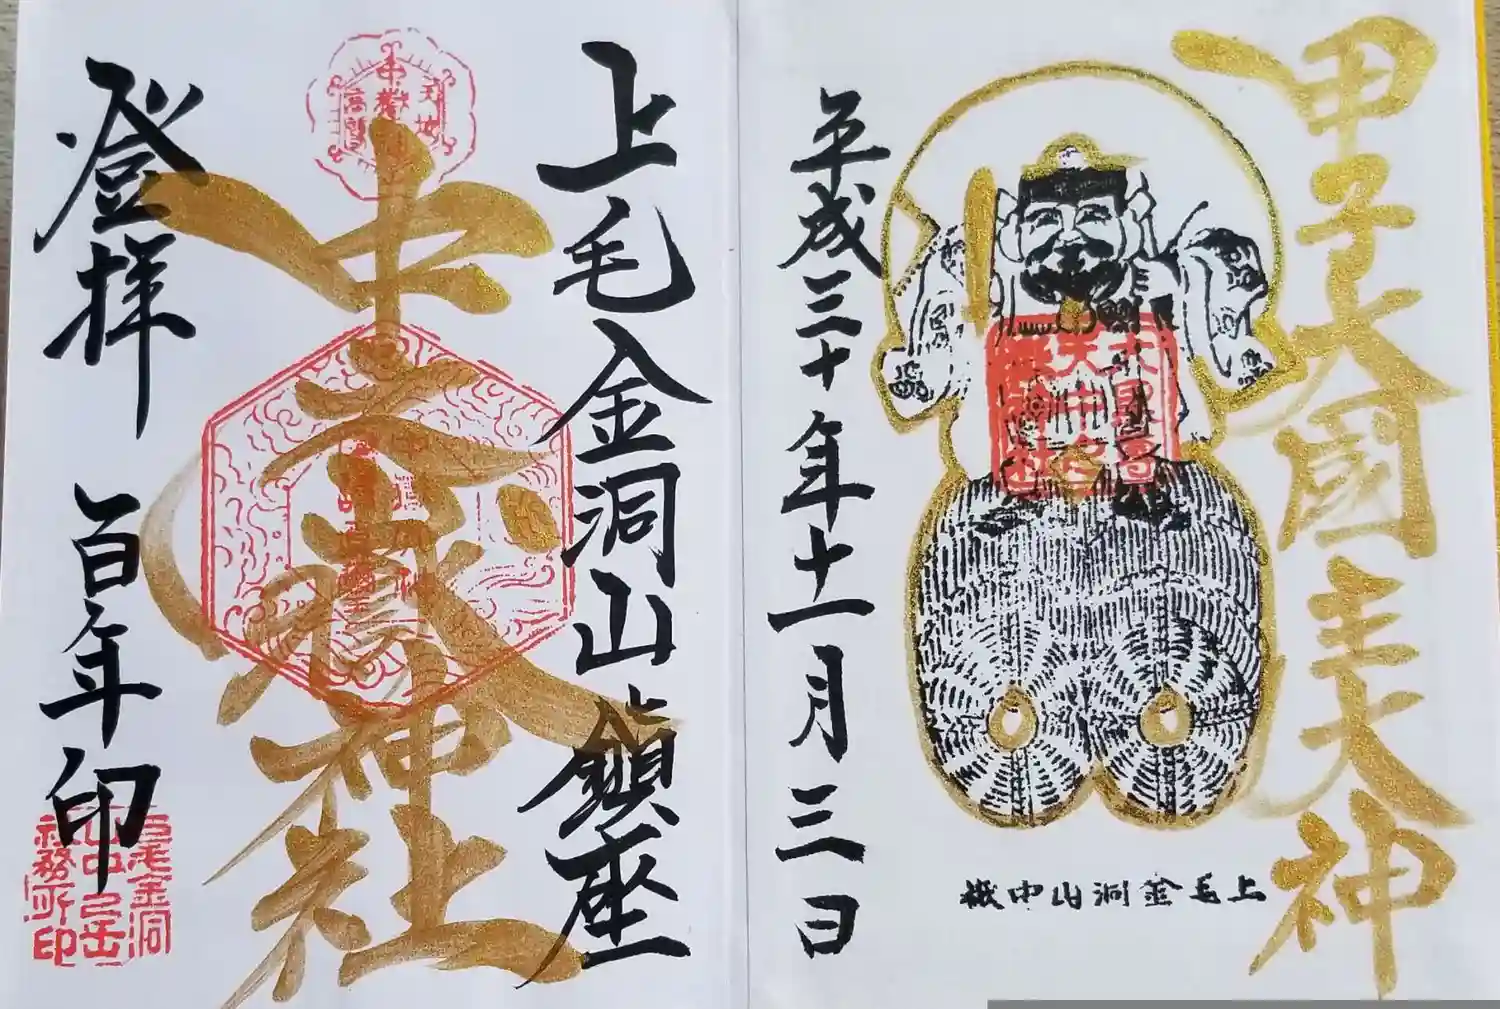 甲子大國主大神
平成三十年十一月三日
上毛金洞山中嶽
上毛金洞山鎮座
中之嶽神社
登拝
百年印
上毛金洞
山中之岳
社務所印